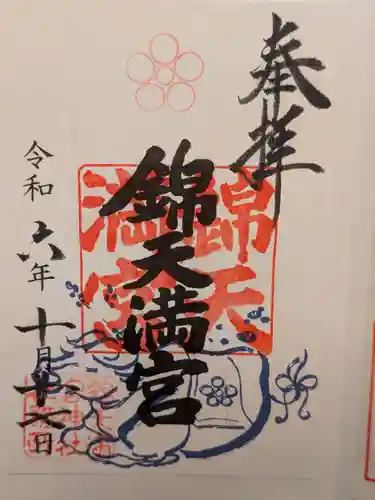 奉拝
錦天満宮
錦天
満宮
令和六年十月十二日